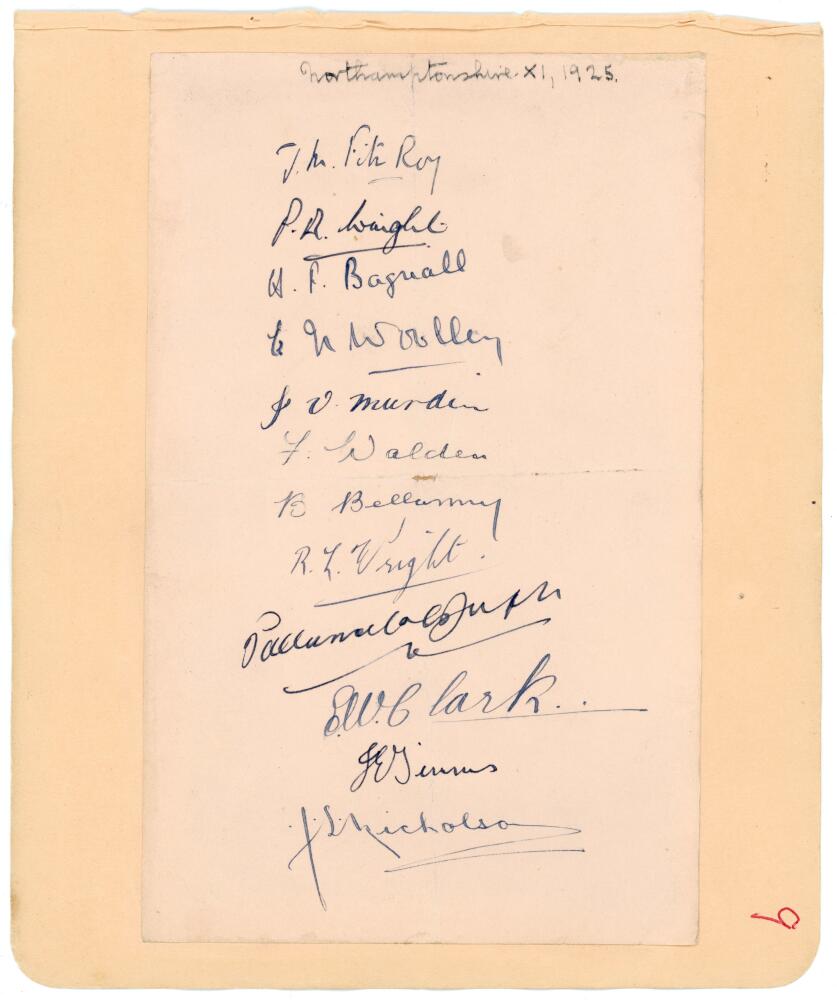 Northamptonshire XI, 1925.
J. M. Fitz Roy
P. A. Wright
H. F. Bagnall
C N Woolley
J V. Murdin
F. Walden
B Bellamy
R. L. Wright.
E.W. Clark..
J E Timms
J. L. Nicholson
6